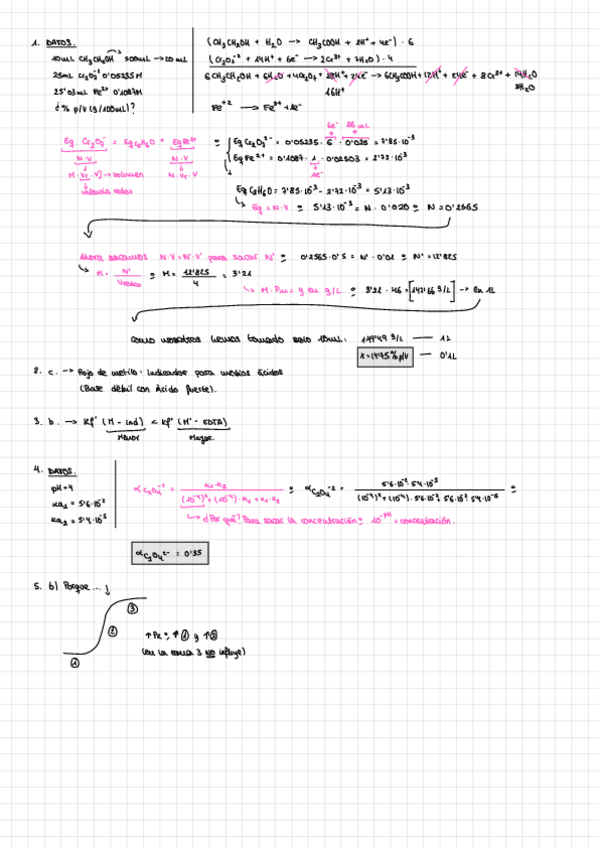 1. DATOS.
10mL CH₃CH₂OH 500mL → 20mL
25mL Cr₂O₇⁻² 0'05235M
25'03mL Fe²⁺ 0'1087M
¿% p/v (g/100mL)?
(CH₃CH₂OH + H₂O → CH₃COOH + 4H⁺ + 4e⁻) · 6
(Cr₂O₇⁻² + 14H⁺ + 6e⁻ → 2Cr³⁺ + 7H₂O) · 4
6CH₃CH₂OH + 6H₂O + 4Cr₂O₇ + + 24e⁻ → 6CH₃COOH + + 24e⁻ + 8Cr³⁺ + H₂O
16H⁺
Fe⁺² → Fe³⁺ + 1e⁻
6e⁻ 25mL
Eq Cr₂O₇⁻ = Eq C₂H₆O + Eq Fe²⁺ = Eq Cr₂O₇²⁻ = 0'05235 · 6 · 0'025 = 7'85·10⁻³
N·V N·V Eq Fe²⁺ = 0'1087 · 1 · 0'02503 = 2'72·10⁻³
1e⁻
valencia redox
Eq C₂H₆O = 7'85·10⁻³ - 2'72·10⁻³ = 5'13·10⁻³
Eq = N·V = 5'13·10⁻³ = N · 0'020 = N = 0'2565
Ahora sacamos N·V = N'·V' para sacar N' = 0'2565·0'5 = N' · 0'01 = N' = 12'825
M = N' / Vredox = M = 12'825 / 4 = 3'21
M · Pm = g en g/L = 3'21 · 46 = [147'66 g/L] → en 1L
como nosotros hemos tomado solo 10mL: g/L — 1L
x = 14'75% p/v — 0'1L
2. c. → Rojo de metilo: indicador para medios ácidos
(Base débil con Ácido fuerte).
3. b. → Kf' (M - ind) < Kf' (M - EDTA)
Menor Mayor
4. DATOS.
pH = 4
ka₁ = 5'6·10⁻²
ka₂ = 5'4·10⁻⁵
αC₂O₄⁻² = K₁·K₂ / (10⁻⁴)² + (10⁻⁴)·K₁ + K₁·K₂ = αC₂O₄⁻² = 5'6·10⁻² · 5'4·10⁻⁵ / (10⁻⁴)² + (10⁻⁴) · 5'6·10⁻² + 5'6·10⁻² · 5'4·10⁻⁵ =
¿Por qué? Para sacar la concentración = 10⁻ᵖᴴ = concentración.
αC₂O₄²⁻ = 0'35
5. b) Porque...
③
② ↑ Pe =, ↑ ① y ↑ ②
(en la zona 3 NO influye)
①